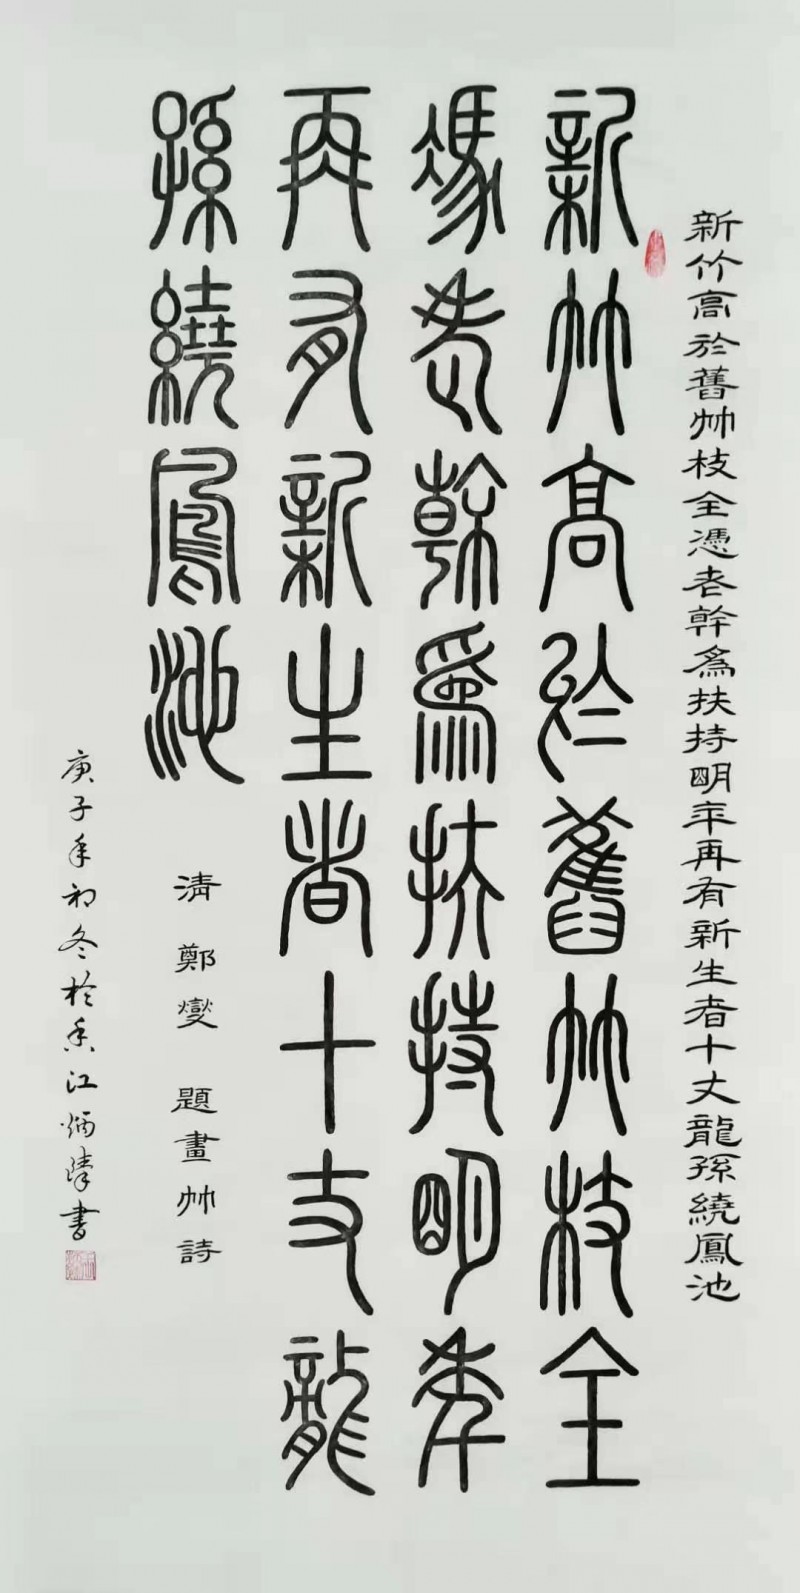 新竹高於舊竹枝全憑老幹為扶持明年再有新生者十丈龍孫繞鳳池
新竹高於舊竹枝全
憑老幹為扶持明年
再有新生者十丈龍
孫繞鳳池
清鄭燮 題畫竹詩
庚子年初冬於香江炳陣書